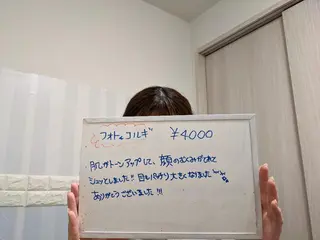 フォト+コルギ ¥4000
肌がトーンアップして、顔のむくみがとれて
シュッとしました!! 目もパッチリ大きくなりました
ありがとうございました!!!